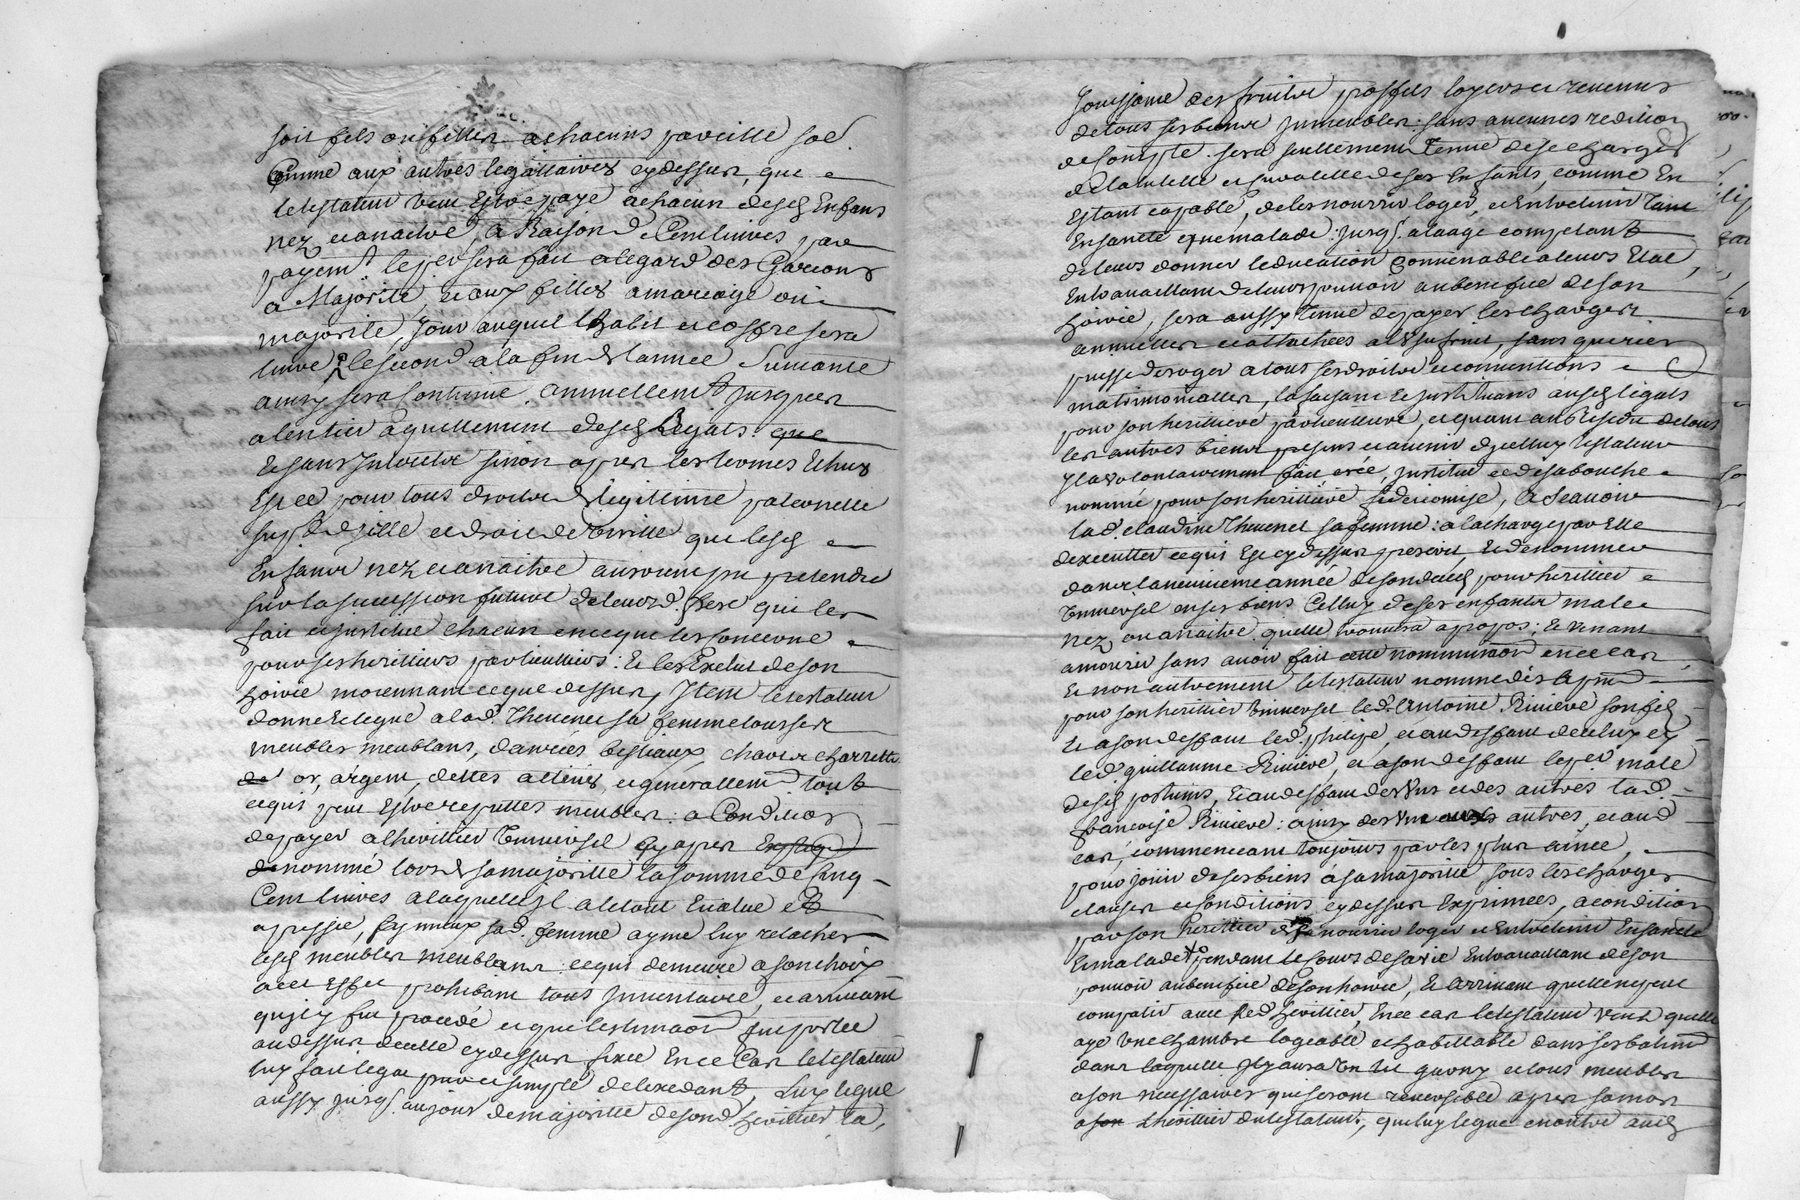 soit fils ou filles a chacuns pareille so͞e.
Comme aux autres legattaires cy dessus, que
le testateur veut Estre payé a chacun desd Enfans
nez, et a naitre, a Raison de Cent livres par
payem̃t le p͞er sera fait a legard des Garcons
a Majorité, et aux filles a mariage ou
majorité, Jour auquel l'habit et coffre sera
livré le second a la fin de l'année Suivante
ainsy sera Continué annuellem̃t jusques
a lentier aquittement desd Legats: que
Et sans Interestz sinon apres les termes Echus
Et ce pour tous droits de legitime paternelle
sup̃t. d'Icelle et droit de qui lesd
Enfans nez et a naitre auroient pu pretendre
sur la succession future de leurd. pere qui les
fait et institue chacun en ce que les Concerne
pour ses heritiers particuliers: Et les Exclut de son
hoirie moiennant ce que dessus, Item le testateur
donne et legue a lad. Thevenet sa femme tous ses
meubles meublans, danrées bestiaux, chars et charrette
de or, argent, dettes actives, et generallem̃t tout
ce qui peut Estre reputtes meubles: a Condition
de payer a l'herittier Universel cy apres
denommé lors de sa majorité la somme de Cinq
Cent livres a laquelle Il a le tout Evalué et
apressié, sy mieux sad. femme ayme luy relacher
lesd meubles meublans ce qui demeure a son choix
a cet Effet prohibant tous Inventaire, et arrivant
quil y fut procedé et que l'estimaõn fut portée
au dessus de celle cy dessus fixée En ce Cas le testateur
luy fait legat pur et simple de l'exedant, Luy legue
aussy jusq. au jour de majorité de sond. herittier, la,
Jouissance des fruits proffits loyers et revenus
de tous ses biens Immeubles: sans aucunes redition
de Compte. sera seullement Tenue de se charger
de la tutelle et curatelle de ses Enfants, comme En
Estant capable, de les nourrir loger, et Entretenir Tant
En santé que malade: jusq. a laage competant
de leurs donner leducation Convenable a leurs Etat,
En travaillant de leurs pouvoir au benefice de son
hoirie, sera aussy Tenue de payer les charges
annuelles et attachées a l'Usufruit, sans que rien
puisse deroger a tous ses droits et conventions
matrimonialles, la faisant et Instituant ausd legats
pour son herittiere particulliere, et quant au Residu de tous
les autres biens presens et avenir dycelluy testateur
Il a volontairement fait créé, Institué et de sa bouche
nommé pour son herittiere fideicomise, A Scavoir
lad. claudine Thevenet sa femme: a la charge par Elle
d'executter ce qui Est cy dessus prescrit, Et de nommer
dans la neuvieme année de son decéd pour herittier
Universel en ses biens Celluy de ses enfants male
Nez ou a naitre. quelle trouvera a propos; Et venant
a mourir sans avoir fait cette nomminaõn en ce cas,
Et non autrement le testateur nomme dés a pñt
pour son herittier Universel led. Antoine Riviere son fils
Et a son deffaut led. philipe, et au deffaut de celuy cy
led. guillaume Riviere, et a son deffaut le p͞er male
desd postums, Et au deffaut des Uns et des autres lad.
francoise Riviere: ainsy des Uns aux autres, et aud
cas, commencant toujours par les plus ainée,
pour jouir de ses biens a sa majorité sous les charges
clauses et conditions cy dessus Exprimées, a condition
par son herittier de nourrir loger et Entretenir En santé
Et malade pendant le Cours de sa vie En travaillant de son
pouvoir au benefice de son hoirie, Et arrivant quelle ne put
compatir avec led. herittier, En ce cas le testateur veut quelle
aye Une chambre logeable et habittable dans ses batim̃ts
dans laquelle Il y aura Un lit garny et tous meubles
a son necessaires qui seront reversible apres sa mort
a son L'herittier du testateur, que luy legue en outre aud